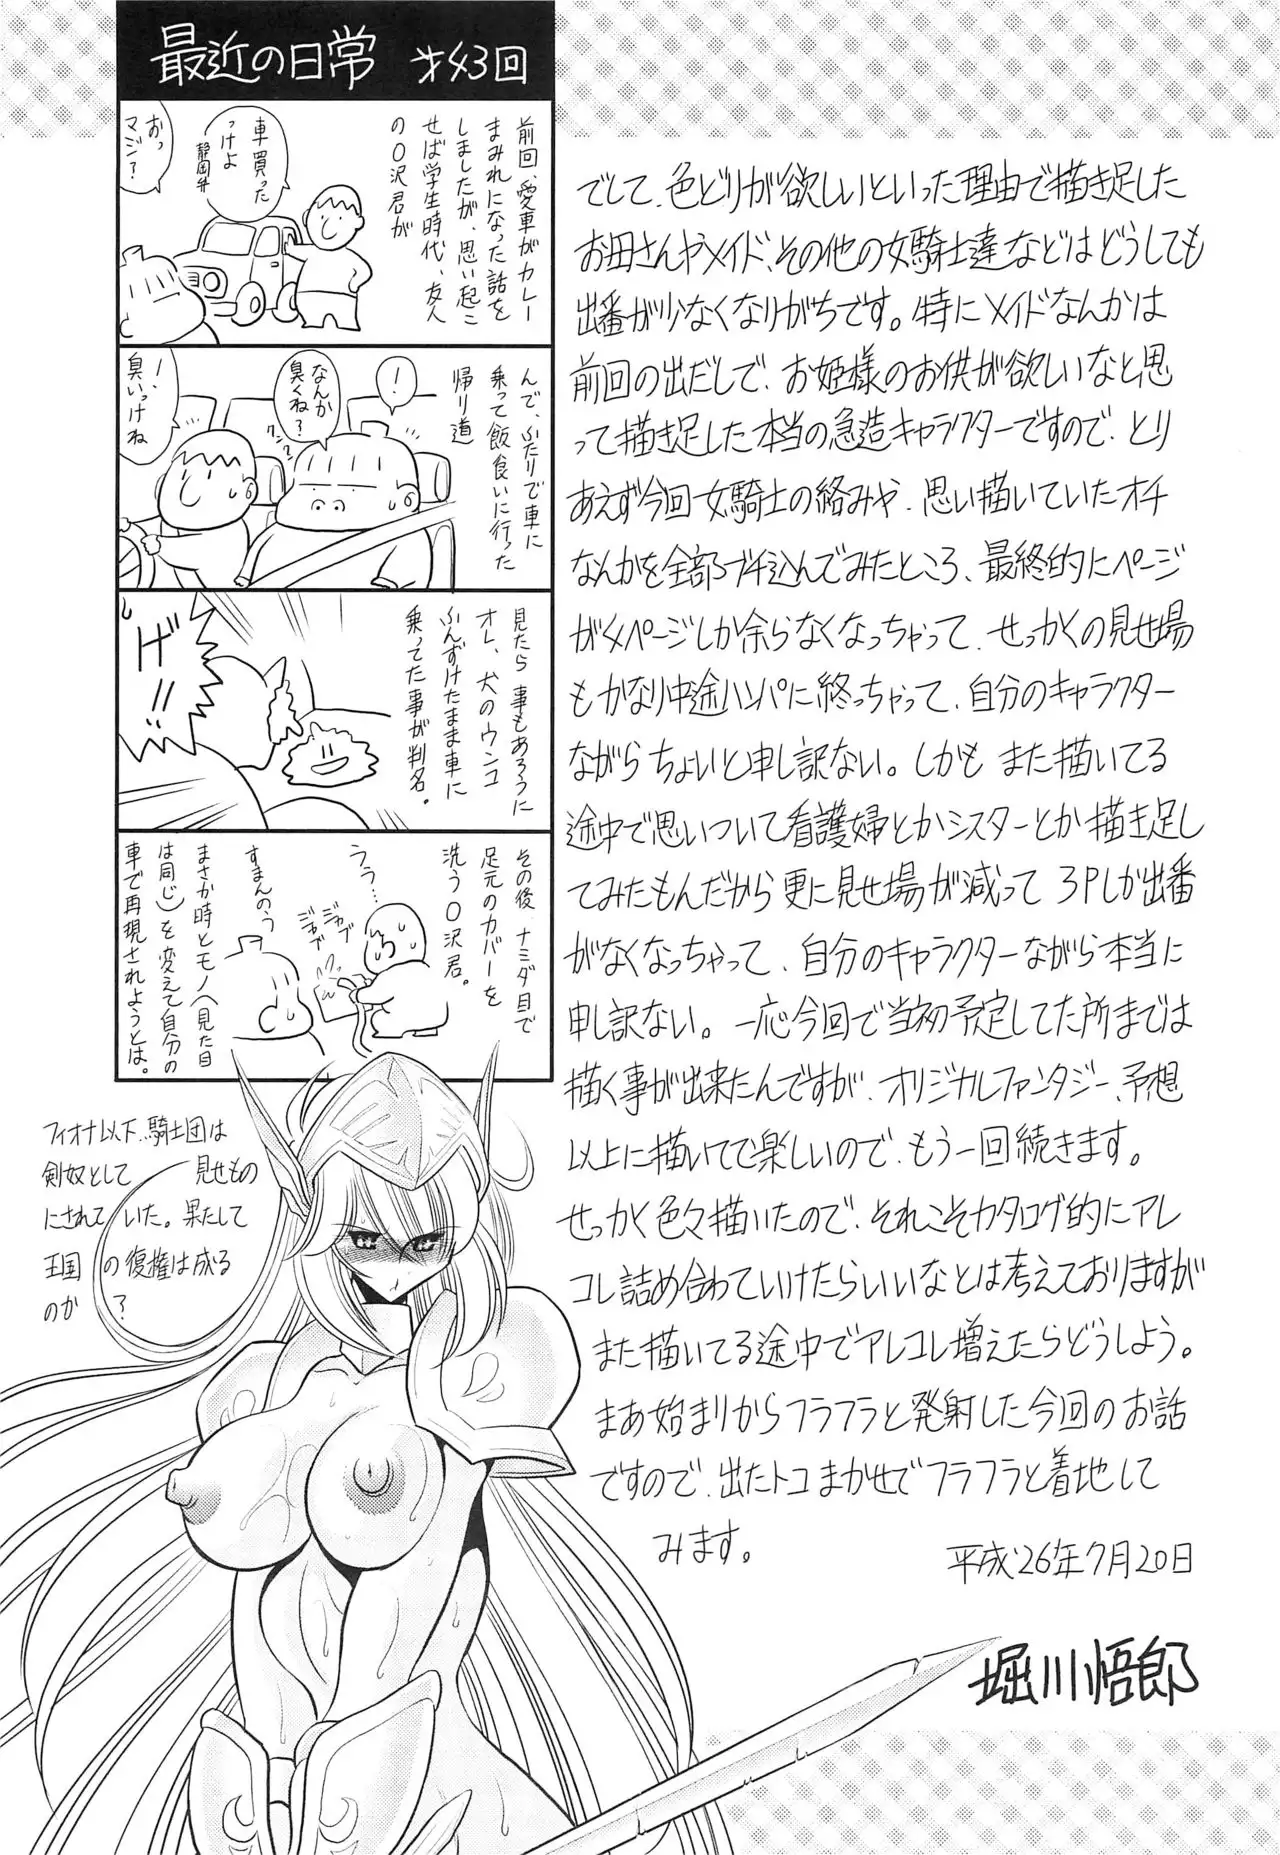 最近の日常 才43回
前回、愛車がカレー
まみれになった話を
しましたが、思い起こ
せば学生時代、友人
の〇沢君が
車買った
っけよ
静岡弁
おっ
マジ?
んで、ふたりで車に
乗って飯食いに行った
帰り道
!
なんか
臭くね?
クン
クン
!、
臭いっけね
見たら事もあろうに
オレ、犬のウンコ
ふんずけたまま車に
乗ってた事が判名。
げ!!
その後、ナミダ目で
足元のカバーを
洗う〇沢君。
うう…
ジャブ
ジャブ
すまんのう
まさか時とモノ(見た目
は同じ)を変えて自分の
車で再現されようとは。
でして、色どりが欲しいといった理由で描き足した
お母さんやメイド、その他の女騎士達などはどうしても
出番が少なくなりがちです。特にメイドなんかは
前回の出だしで、お姫様のお供が欲しいなと思
って描き足した本当の急造キャラクターですので、とり
あえず今回女騎士の絡みや、思い描いていたオチ
なんかを全部ブチ込んでみたところ、最終的にページ
が4ページしか余らなくなっちゃって、せっかくの見せ場
もかなり中途ハンパに終っちゃって、自分のキャラクター
ながらちょいと申し訳ない。しかもまた描いてる
途中で思いついて看護婦とかシスターとか描き足し
てみたもんだから更に見せ場が減って3Pしか出番
がなくなっちゃって、自分のキャラクターながら本当に
申し訳ない。一応今回で当初予定してた所までは
描く事が出来たんですが、オリジナルファンタジー、予想
以上に描いてて楽しいので、もう一回続きます。
せっかく色々描いたので、それこそカタログ的にアレ
コレ詰め合わていけたらいいなとは考えておりますが
また描いてる途中でアレコレ増えたらどうしよう。
まあ始まりからフラフラと発射した今回のお話
ですので、出たトコまかせでフラフラと着地して
みます。
平成26年7月20日
堀川悟郎
フィオナ以下、騎士団は
剣奴として見せもの
にされていた。果たして
王国の復権は成る
のか?